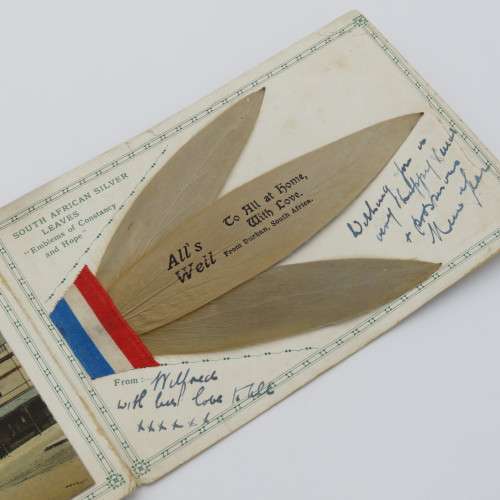 SOUTH AFRICAN SILVER
LEAVES
"Emblems of Constancy
and Hope"
All's
Well
To All at Home,
With Love.
From Durban, South Africa.
Wishing you a
very Happy Xmas
& prosperous
New Year
From: Wilfred
with best love to all
xxxxxx